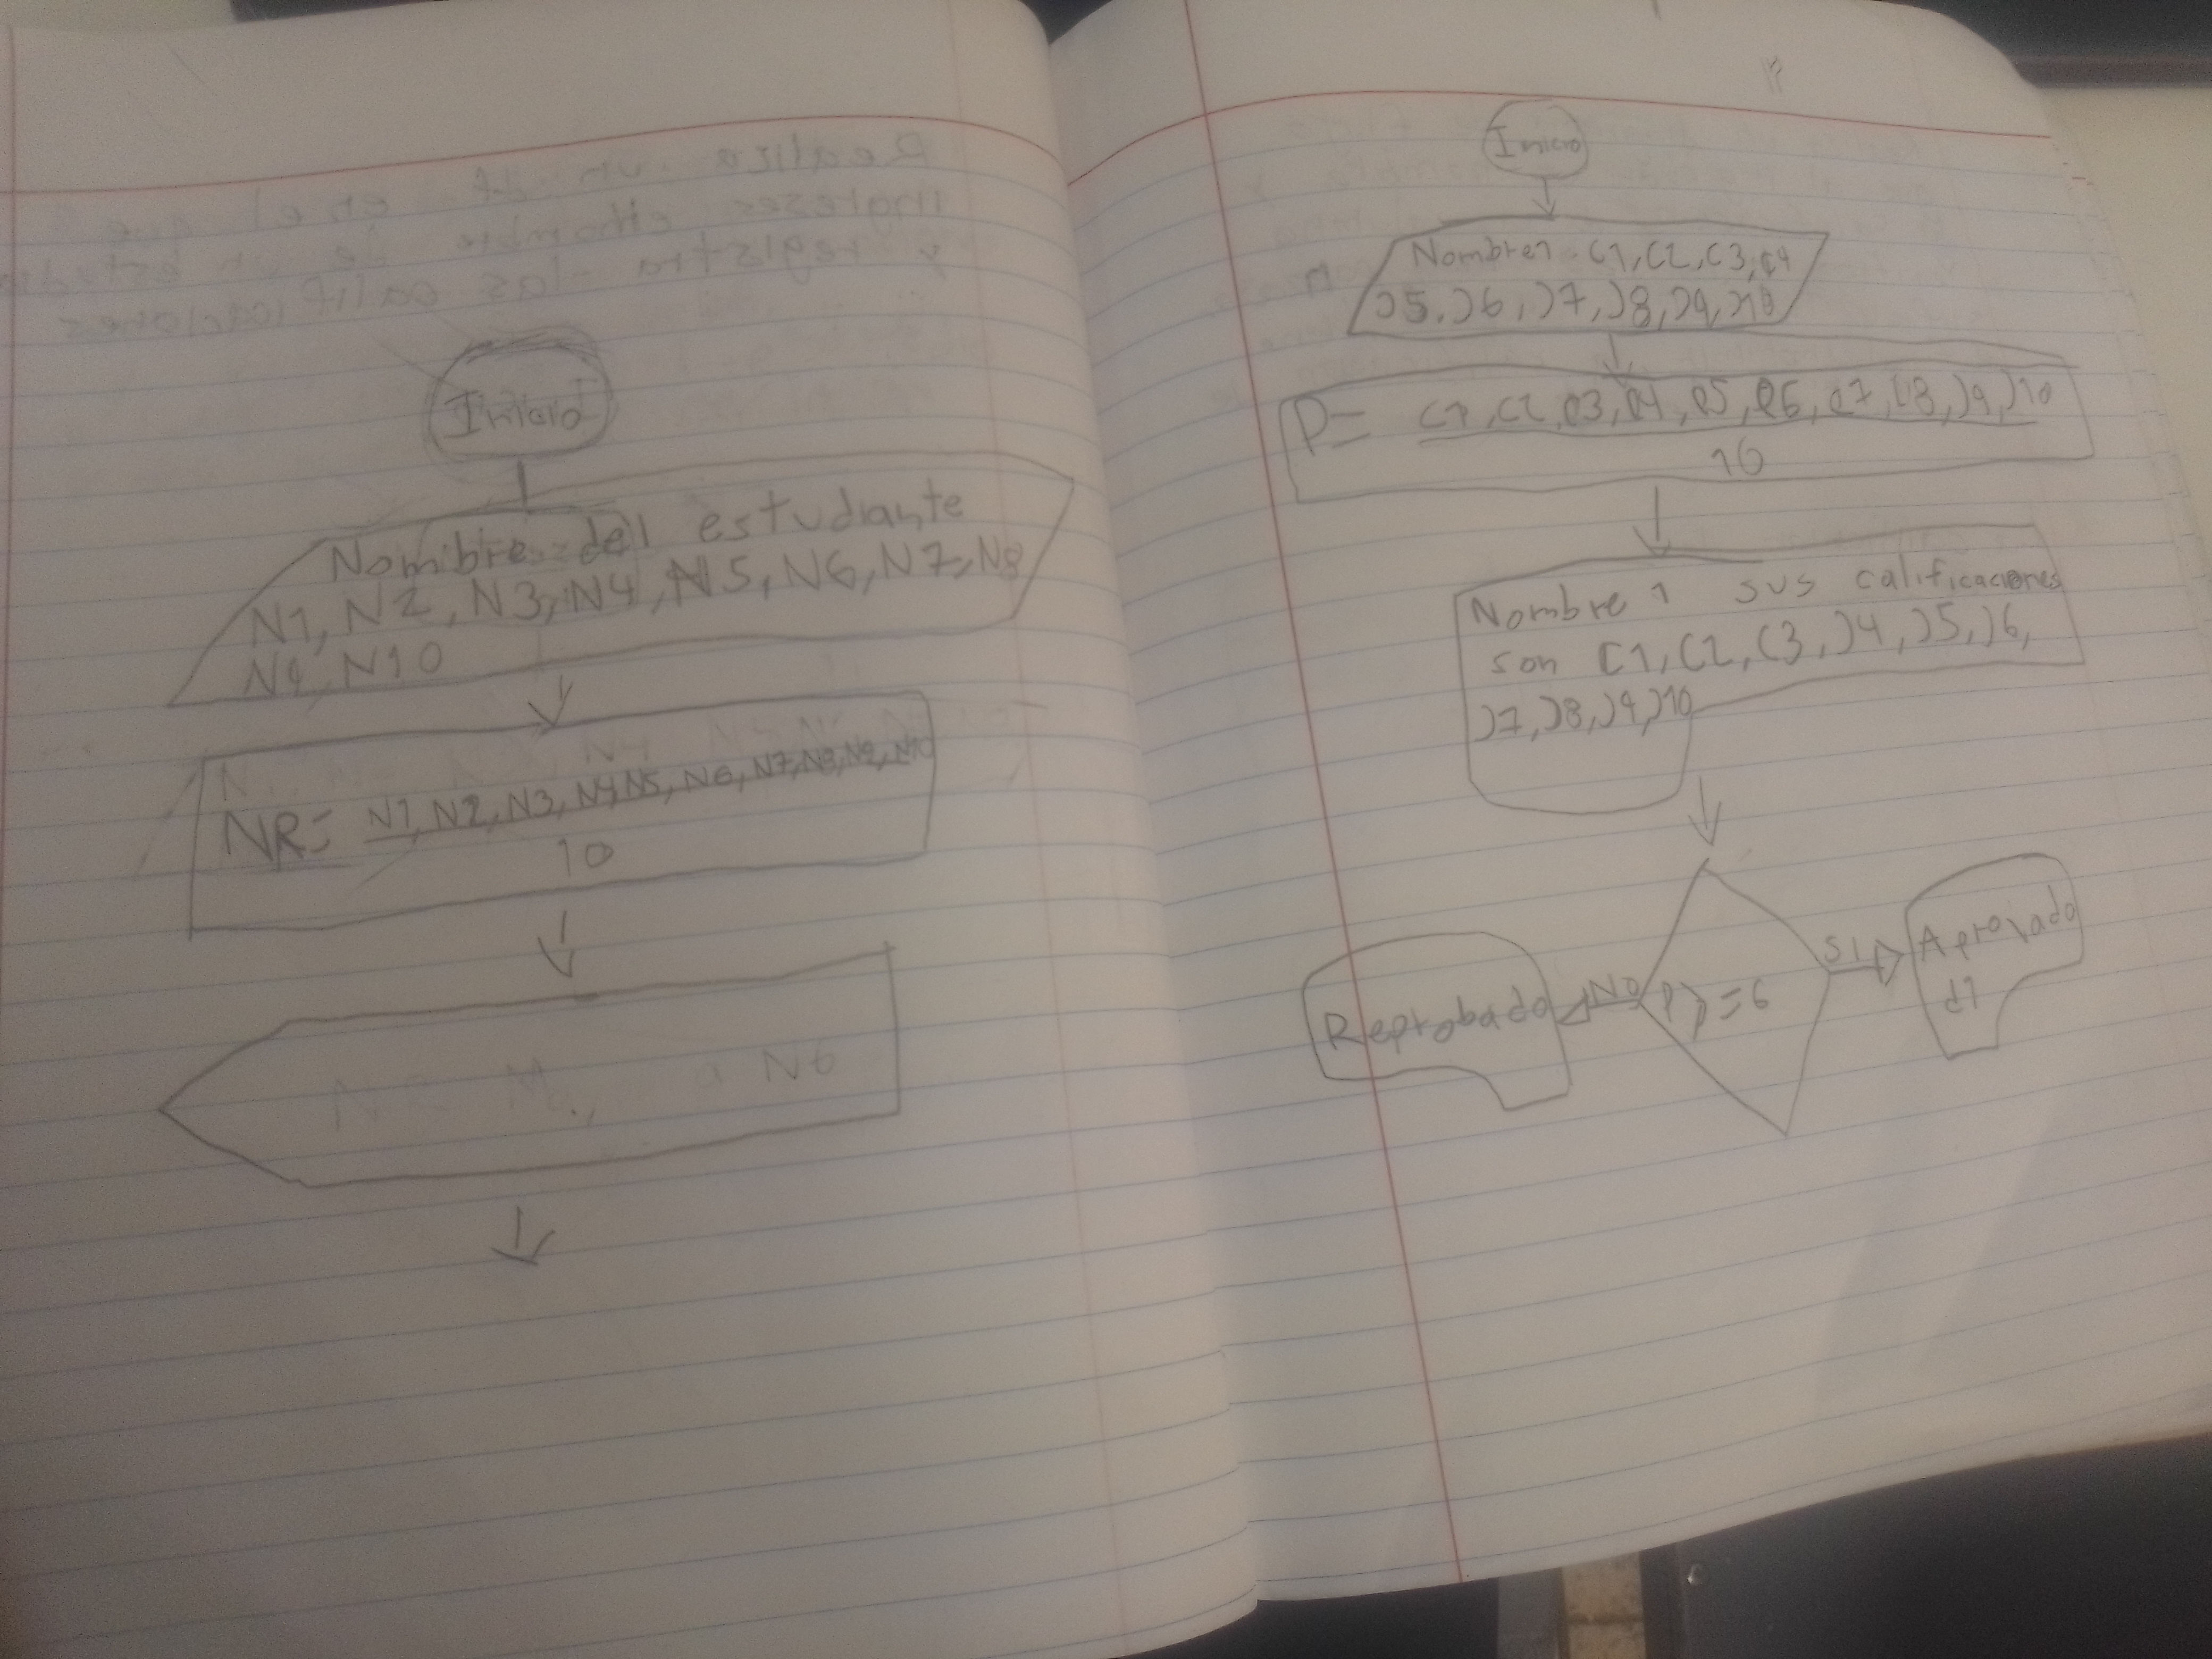 Inicio
Nombre del estudiante
N1, N2, N3, N4, N5, N6, N7, N8
N9, N10
NR= N1, N2, N3, N4, N5, N6, N7, N8, N9, N10
10
N6
Inicio
Nombre1 C1, C2, C3, C4
C5, C6, C7, C8, C9, C10
P= C1, C2, C3, C4, C5, C6, C7, C8, C9, C10
10
Nombre 1 sus calificaciones
son C1, C2, C3, C4, C5, C6,
C7, C8, C9, C10
P>=6
NO
Reprobado
SI
Aprovado